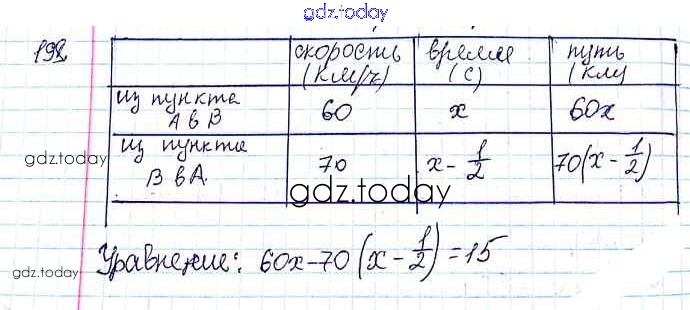 gdz.today
198.
скорость (км/ч) время (с) путь (км)
из пункта А в В 60 x 60x
из пункта В в А. 70 x - 1/2 70(x - 1/2)
gdz.today
gdz.today
Уравнение: 60x-70(x - 1/2)=15
gdz.today